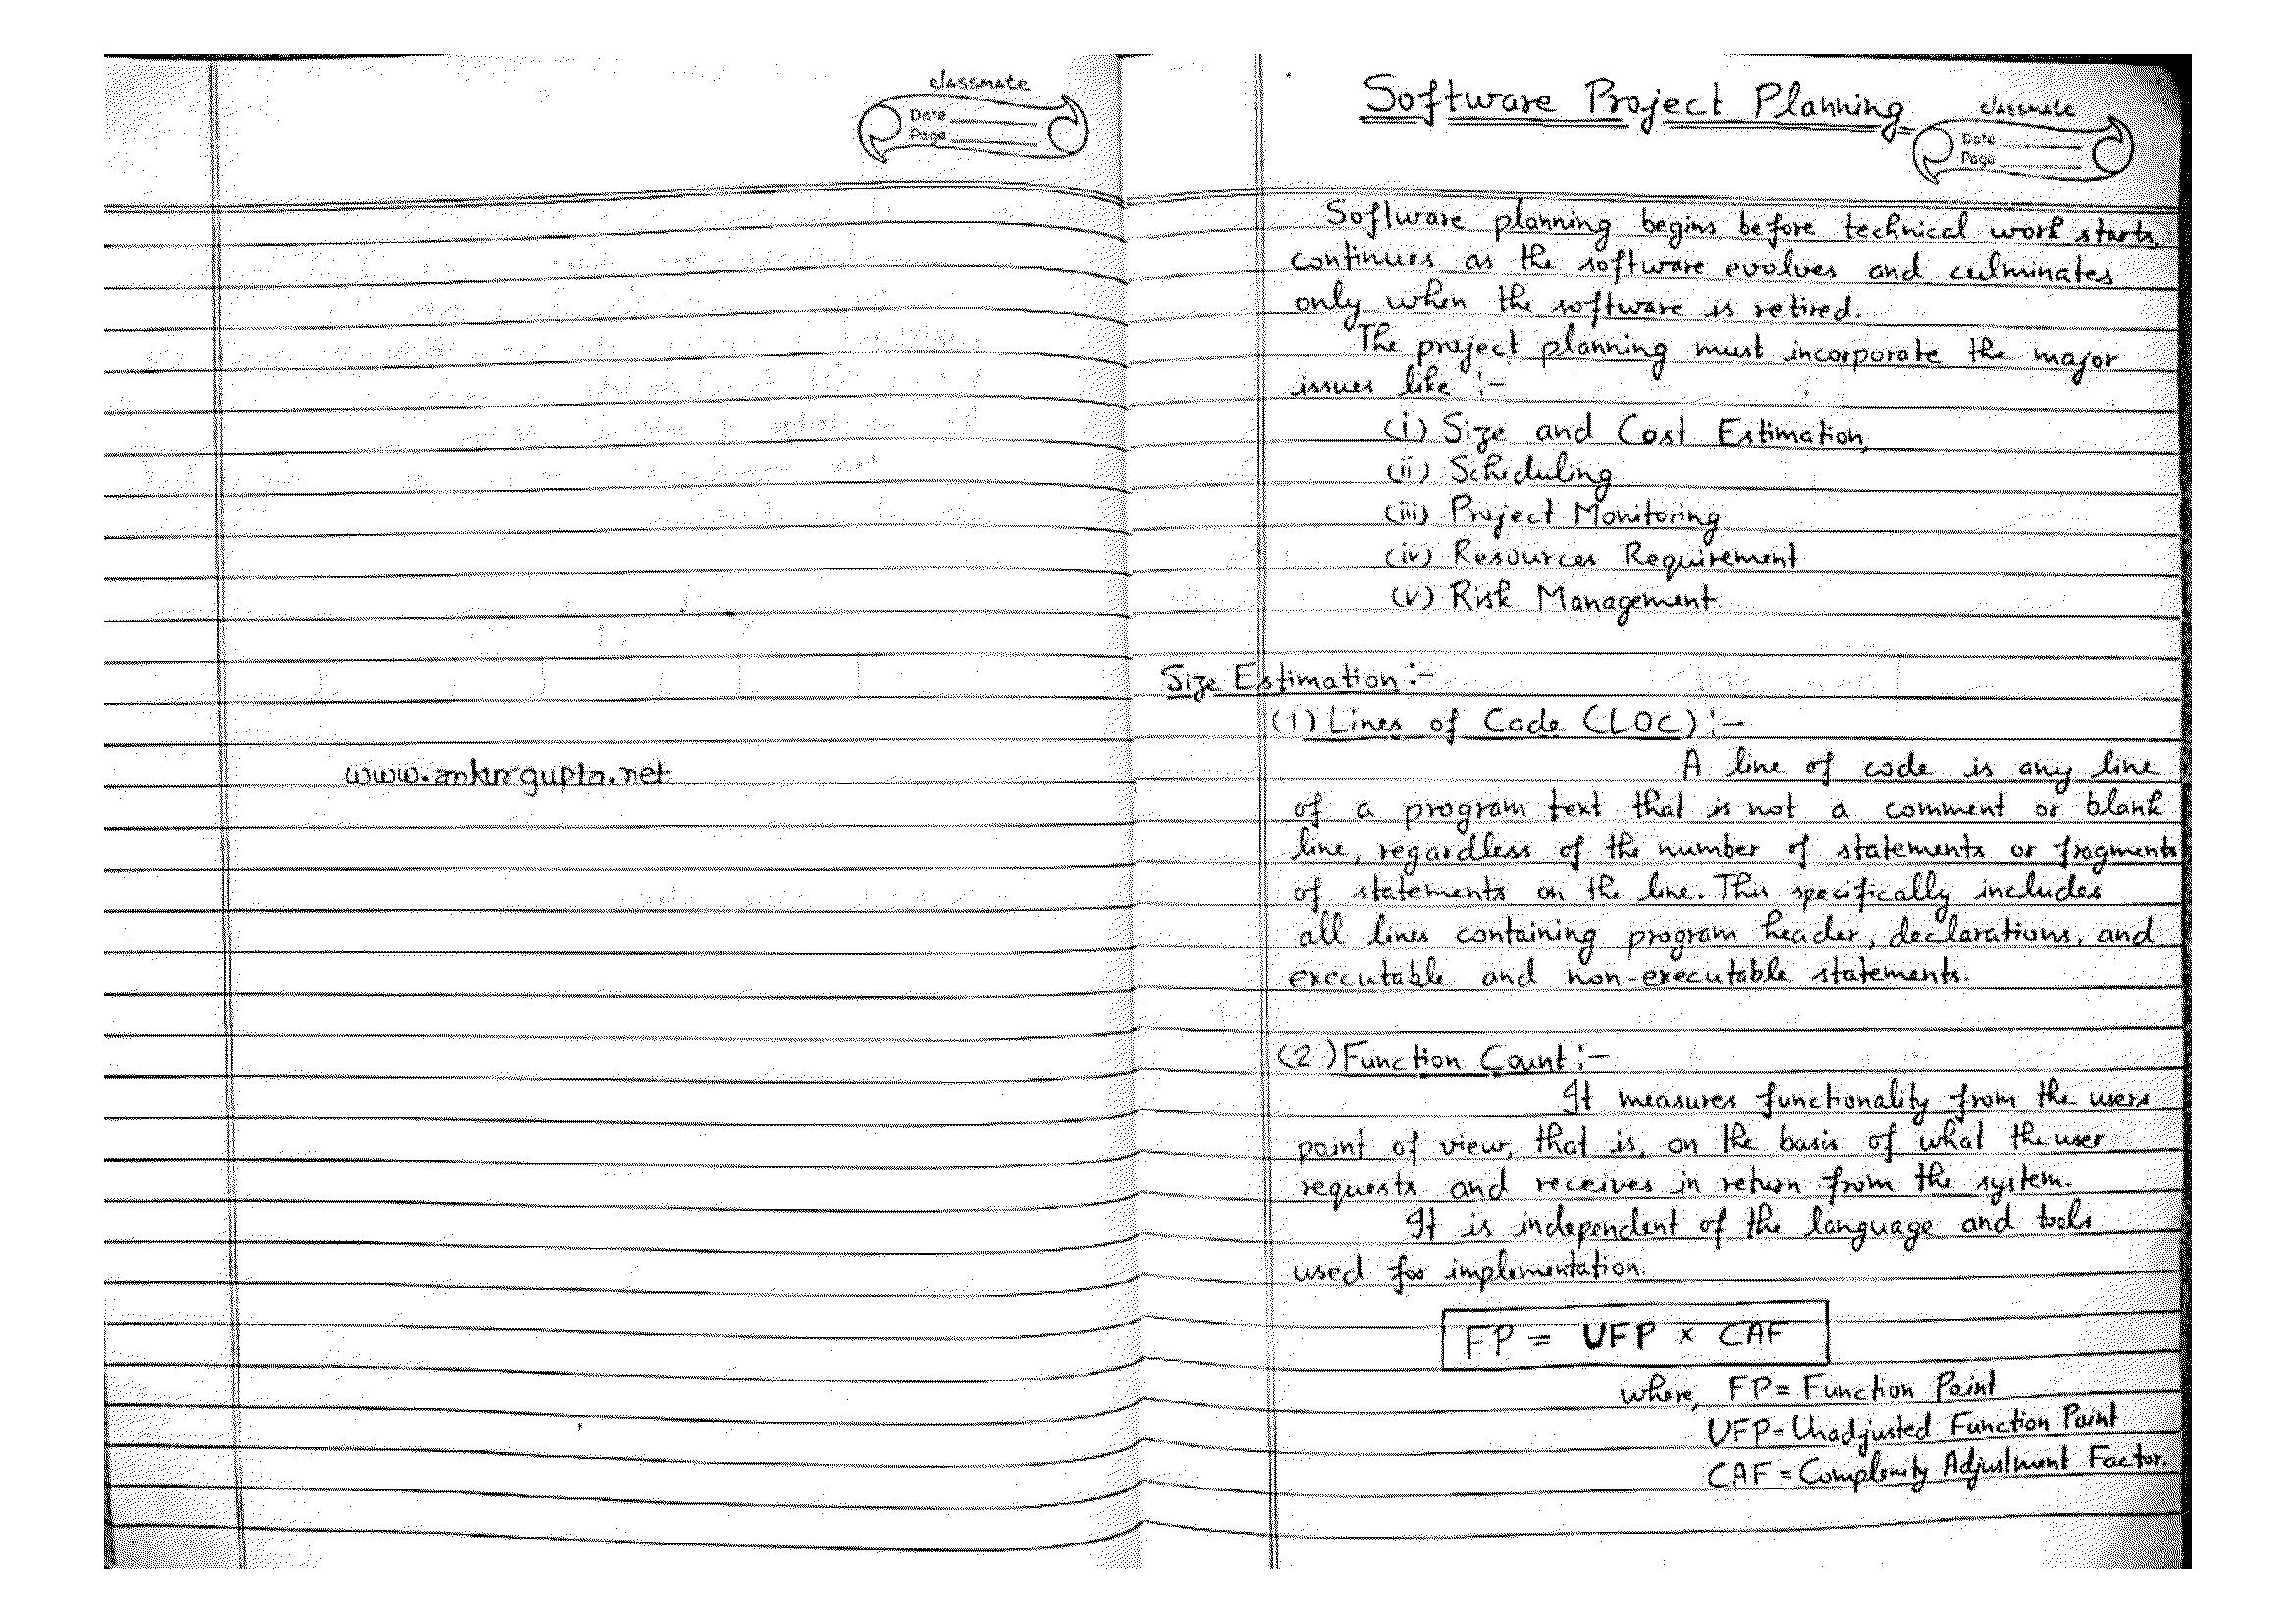 classmate
Date
Page
www.ankurgupta.net
Software Project Planning
classmate
Date
Page
Software planning begins before technical work starts,
continues as the software evolves and culminates
only when the software is retired.
The project planning must incorporate the major
issues like :-
(i) Size and Cost Estimation,
(ii) Scheduling
(iii) Project Monitoring
(iv) Resources Requirement
(v) Risk Management.
Size Estimation :-
(1) Lines of Code (LOC) :-
A line of code is any line
of a program text that is not a comment or blank
line, regardless of the number of statements or fragments
of statements on the line. This specifically includes
all lines containing program header, declarations, and
executable and non-executable statements.
(2) Function Count :-
It measures functionality from the users
point of view, that is, on the basis of what the user
requests and receives in return from the system.
It is independent of the language and tools
used for implementation.
FP = UFP x CAF
where, FP = Function Point
UFP = Unadjusted Function Point
CAF = Complexity Adjustment Factor.